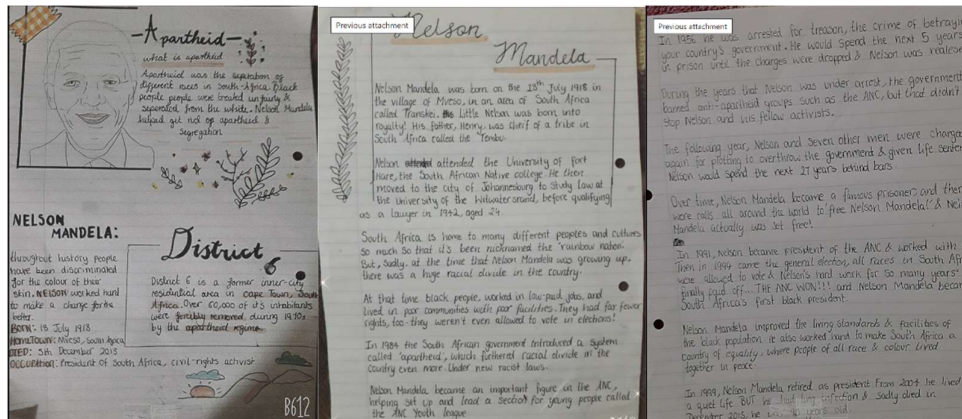 -Apartheid-
what is apartheid
Apartheid was the separation of
different races in South-Africa. Black
people people were treated unfairly &
separated from the white. Nelson Mandela
helped get rid op apartheid &
Segregation
NELSON
MANDELA:
throughout history people
have been discriminated
for the colour of their
skin. NELSON worked hard
to make a change for the
better.
BORN: 18 July 1918
HomeTown: Mveso, South Africa
DIED: 5th December 2013
OCCUPATION: President of South Africa, civil-rights activist
District
6
District 6 is a former inner-city
residential area in Cape Town, South
Africa. Over 60,000 of it's inhabitants
were forcibly removed, during 1970s
by the apartheid regime
B612
Previous attachment
Nelson
Mandela
Nelson Mandela was born on the 18th July 1918 in
the village of Mveso, in an area of South Africa
called Transkei. Little Nelson was born into
royalty! His father, Henry, was cheif of a tribe in
South Africa called the Tembu.
Nelson attended the University of Fort
Hare, the South African Native college. He then
moved to the city of Johannesburg to study law at
the University of the Witwatersrand, before qualifying
as a lawyer in 1942, aged 24.
South Africa is home to many different peoples and cultures
so much so that it's been nicknamed the 'rainbow nation'.
But, sadly, at the time that Nelson Mandela was growing up,
there was a huge racial divide in the country.
At that time black people, worked in low-paid jobs, and
lived in poor communities with poor facilities. They had far fewer
rights, too- they weren't even allowed to vote in elections!
In 1984 the South African government introduced a system
called 'apartheid', which furthered racial divide in the
country even more. Under new racist laws.
Nelson Mandela became an important figure in the ANC,
helping set up and lead a section for young people called
the ANC Youth league
Previous attachment
In 1956 he was arrested for treason, the crime of betraying
your country's government. He would spend the next 5 years
in prison until the charges were dropped & Nelson was realese
During the years that Nelson was under arrest, the government
banned anti-apartheid groups such as the ANC, but that didn't
stop Nelson and his fellow activists.
The following year, Nelson and Seven other men were charged
again for plotting to overthrow the government & given life senten
Nelson would spend the next 27 years behind bars.
Over time, Nelson Mandela became a famous prisoner and ther
were calls all around the world to 'free Nelson Mandela!' & Nel
Mandela actually was set free!
In 1991, Nelson became president of the ANC & worked with
Then in 1994 came the general election, all races in South Afri
were allowed to vote & Nelson's hard work for so many years
finally paid off... THE ANC WON!!! and Nelson Mandela becam
South Africa's first black president.
Nelson Mandela improved the living standards & facilities of
the black population. He also worked hard to make South Africa a
country of equality, where people of all race & colour lived
together in peace.
In 1999, Nelson Mandela retired as president. From 2004 he lived
a quiet life BUT he had lung infection & sadly died in
December 2013, he was years old